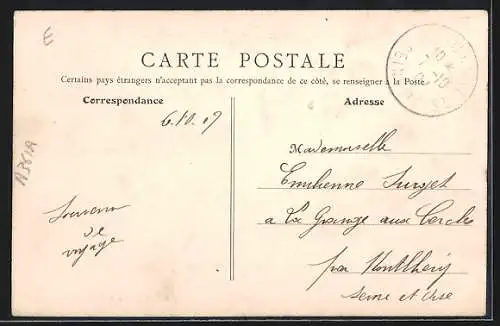 E
CARTE POSTALE
Certains pays étrangers n'acceptant pas la correspondance de ce côté, se renseigner à la Poste
Correspondance
Adresse
6.10.07
Mademoiselle
Emilienne Surget
a La Grange aux Cercles
par Montlhéry
Seine et Oise
Souvenir
de
voyage